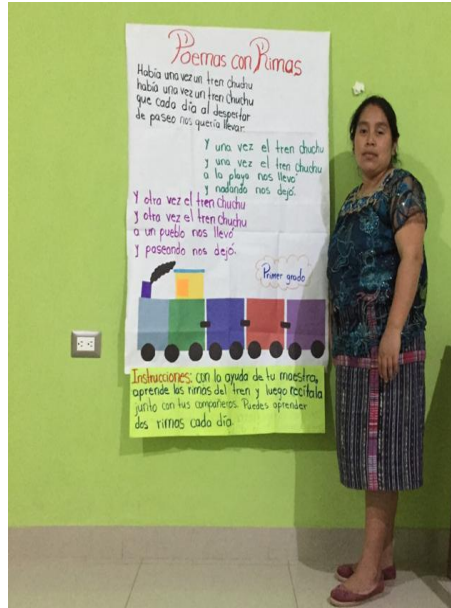 Poemas con Rimas
Había una vez un tren chuchu
había una vez un tren chuchu
que cada día al despertar
de paseo nos quería llevar.
Y una vez el tren chuchu
y una vez el tren chuchu
a la playa nos llevó
y nadando nos dejó.
Y otra vez el tren chuchu
y otra vez el tren chuchu
a un pueblo nos llevó
y paseando nos dejó.
Primer grado
Instrucciones: con la ayuda de tu maestra,
aprende las rimas del tren y luego recítala
junto con tus compañeros. Puedes aprender
dos rimas cada día.